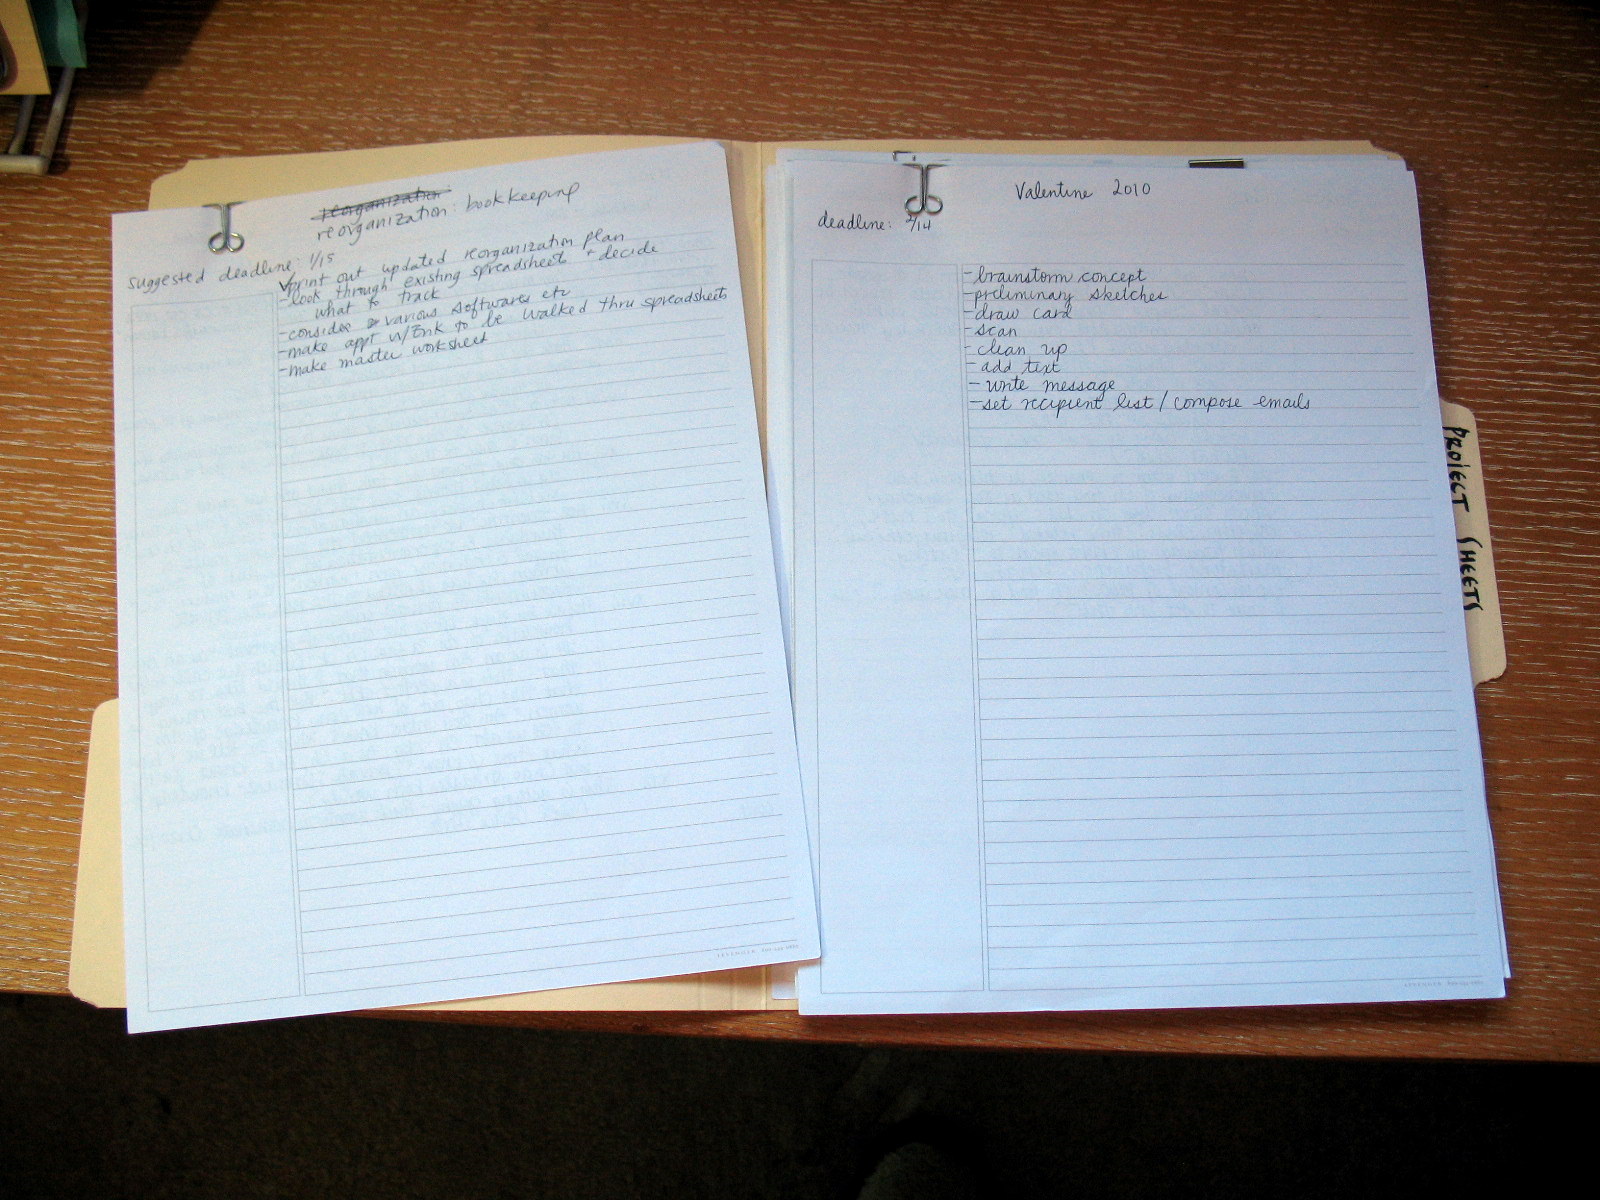 reorganization
reorganization: bookkeeping
suggested deadline: 1/15
√print out updated reorganization plan
-look through existing spreadsheets + decide
what to track
-consider various softwares etc
-make appt w/ to be walked thru spreadsheets
-make master worksheet
Valentine 2010
deadline: 2/14
-brainstorm concept
-preliminary sketches
-draw card
-scan
-clean up
-add text
-write message
-set recipient list / compose emails
PROJECT SHEETS